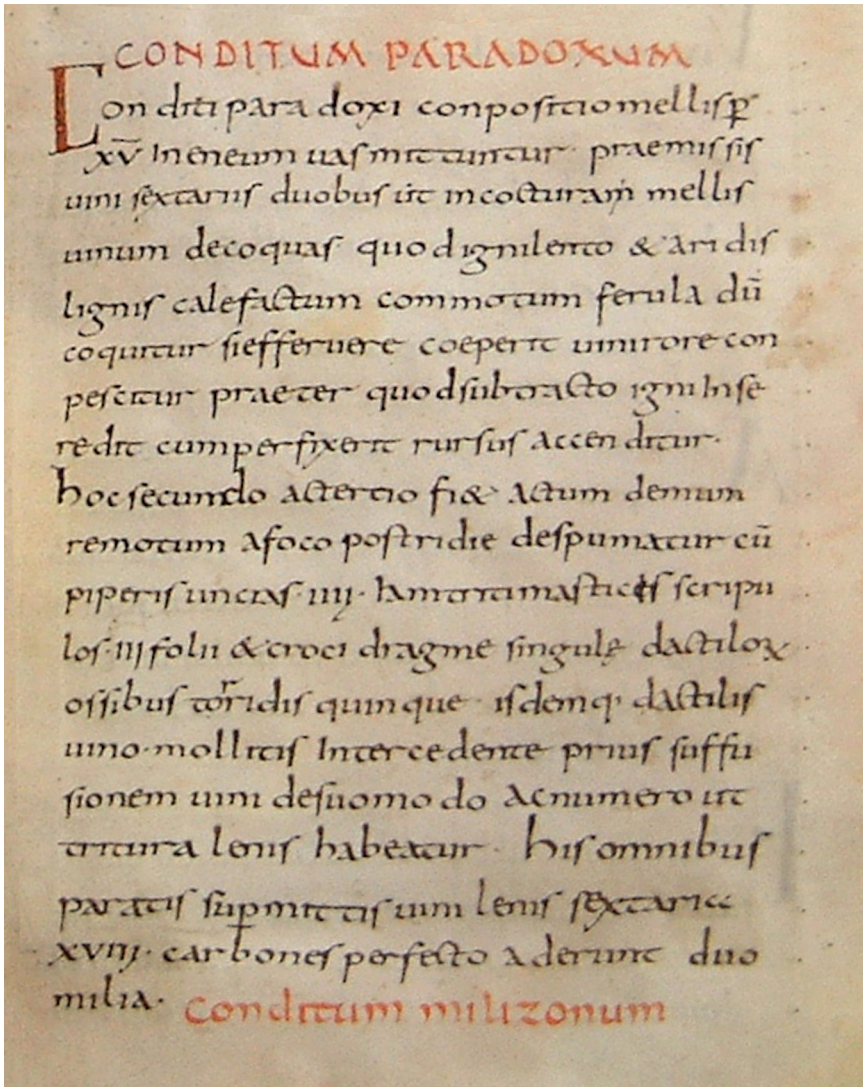 CONDITUM PARADOXUM
Conditi para doxi conpositio mellis p̄
xv̄ In eneum uas mittuntur · praemissis
uini sextariis duobus ut in cocturam mellis
uinum decoquas quod igni lento & aridis
lignis calefactum commotum ferula dū
coquitur si efferuere coeperit uini rore con
pescitur praeter quod subtracto igni In se
redit cum perfixerit rursus accenditur·
hoc secundo ac tertio fi& actum demum
remotum a foco postridie despumatur cū
piperis uncias · IIII · hamtriti masticis scripu
los · III folii & croci dragme singulę dactiloꝝ
ossibus torridis quinque · isdemq· dactilis
uino · mollitis Intercedente prius suffu
sionem uini desuo modo ac numero ut
tritura lenis habeatur · his omnibus
paratis sup̄mittis uini lenis sextaria
XVIII · carbones perfecto aderunt duo
milia ·
Conditum milizonum